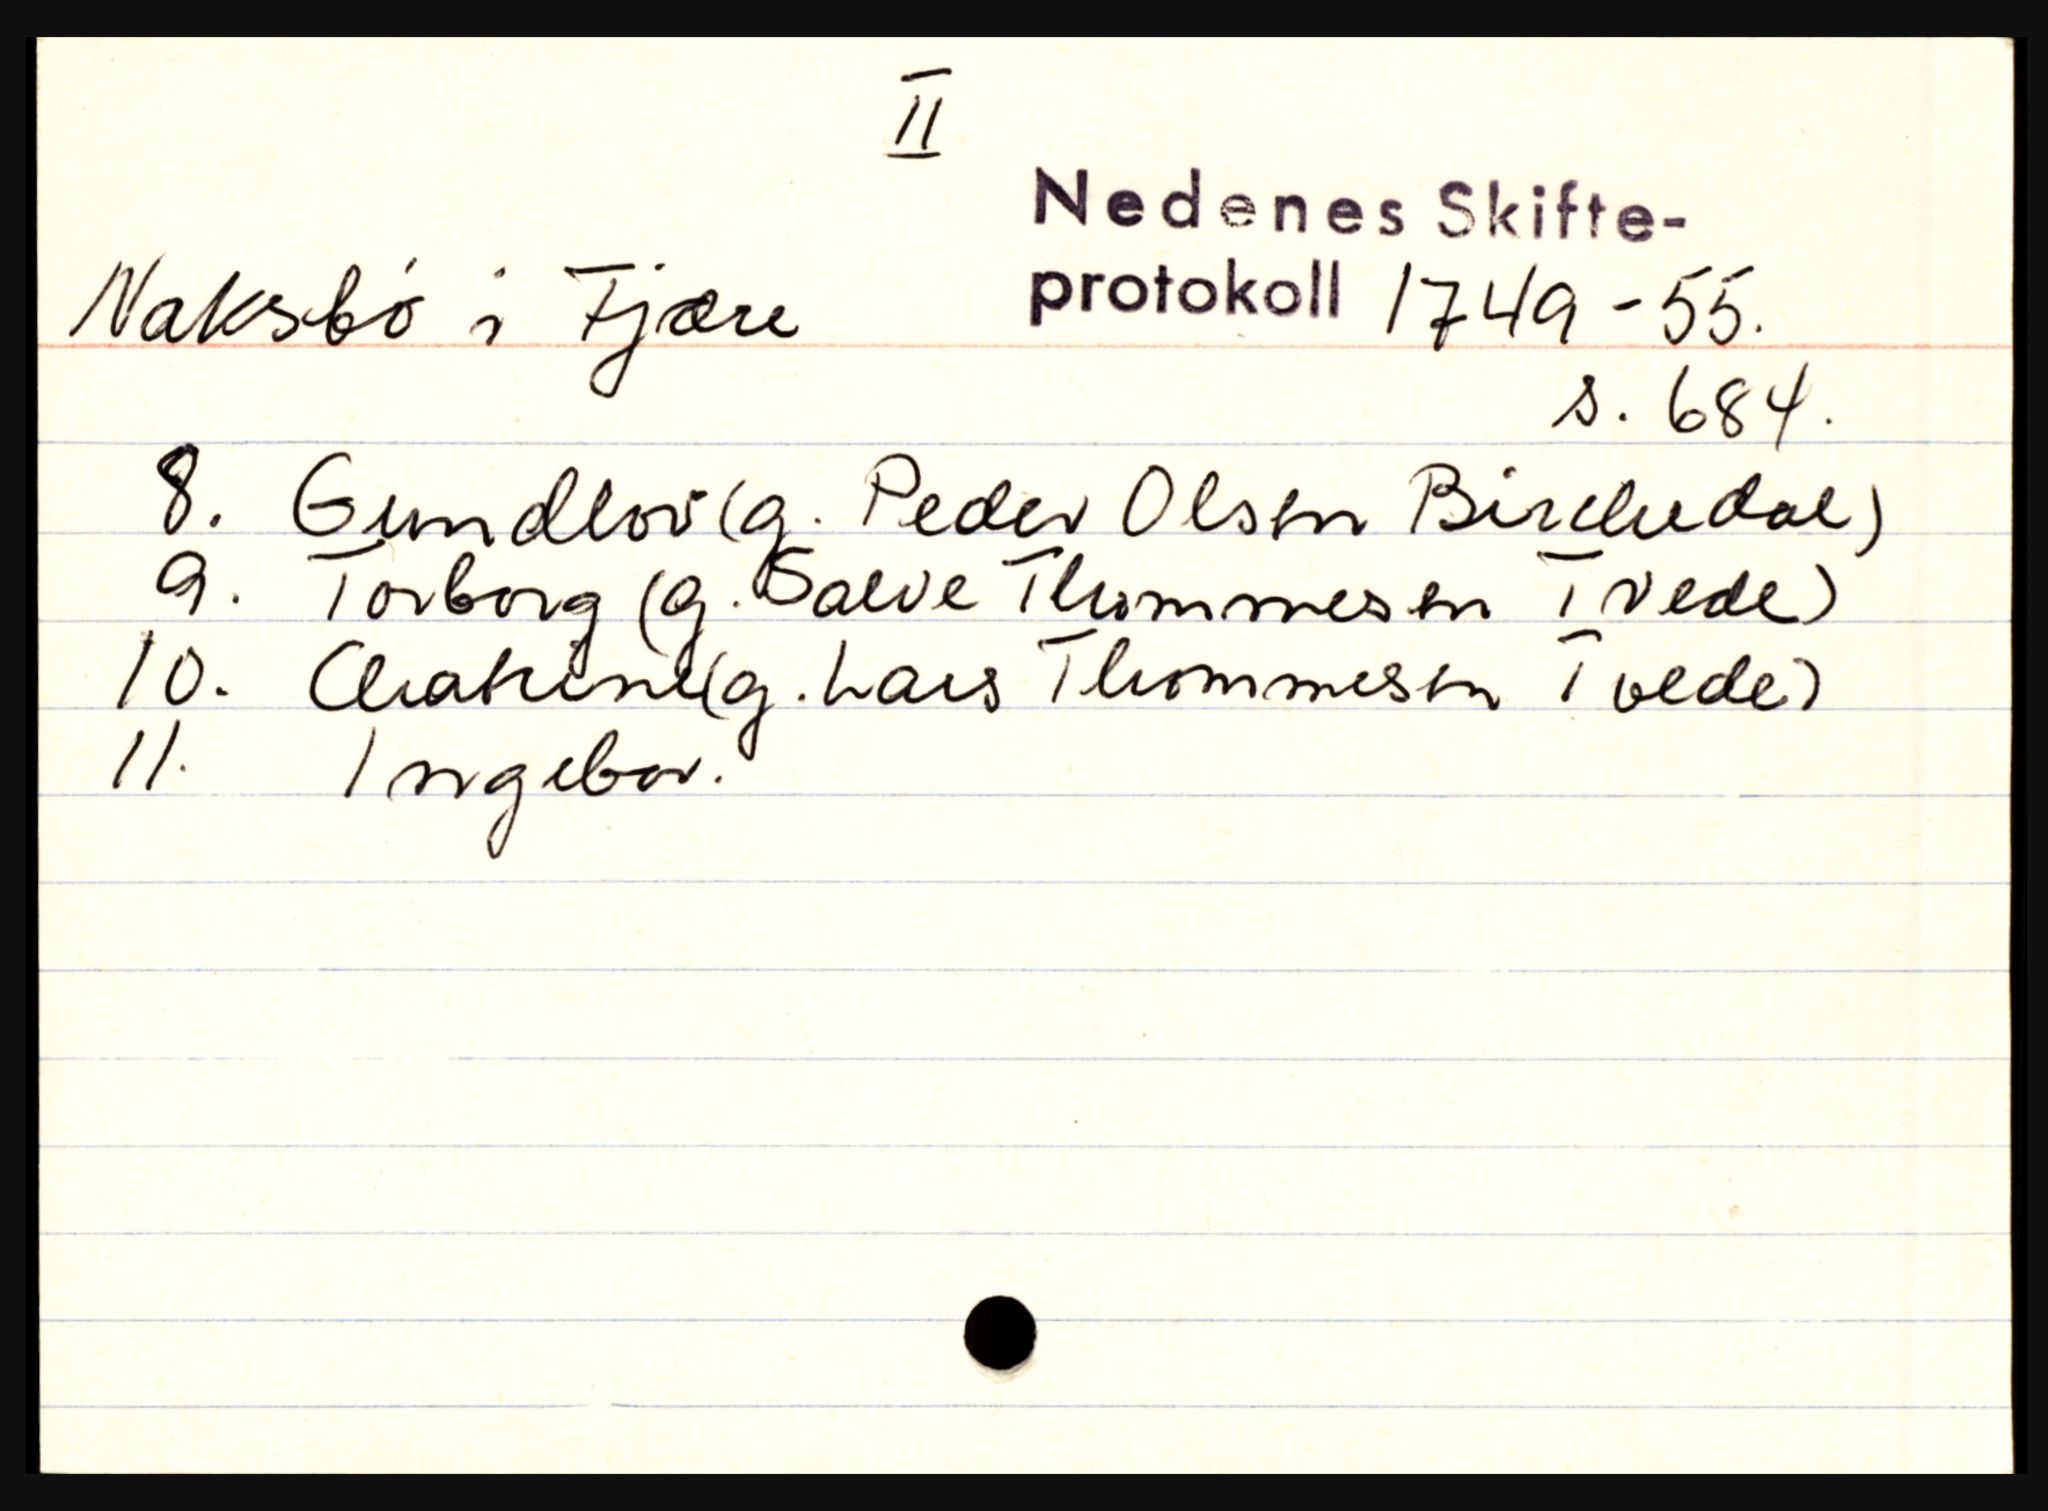 II
Nedenes Skifte-
Naksbö i Fjære protokoll 1749-55.
s. 684.
8. Gundlov (g. Peder Olsen Birchedal)
9. Torborg (g. Salve Thommesen Tvede)
10. (g. Lars Thommesen Tvede)
11. Ingebor.